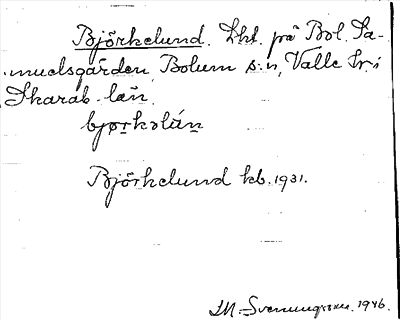 Björkelund. Lht. på Bol. Sa-
muelsgården, Bolum s:n, Valle h:d
Skarab. län.
bjørkolún
Björkelund kb. 1931.
M. Svenungsson. 1946.